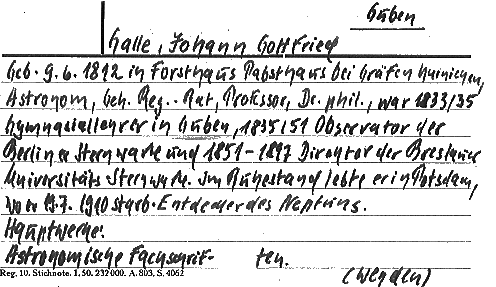 Guben
Galle, Johann Gottfried
Geb. 9.6. 1812 in Forsthaus Pabsthaus bei Gräfenhainichen,
Astronom, Geh. Reg.. Rat, Professor, Dr. phil., war 1833/35
Gymnasiallehrer in Guben, 1835/51 Observator der
Berliner Sternwarte und 1851-1897 Direktor der Breslauer
Universitäts Sternwarte. Im Ruhestand lebte er in Potsdam,
wo er 1910 starb. Entdecker des Neptuns.
Hauptwerke:
Astronomische Fachschrif- ten.
Reg. 10. Stichnote. 1, 50. 232000. A. 803, S. 4062
(Wenden)